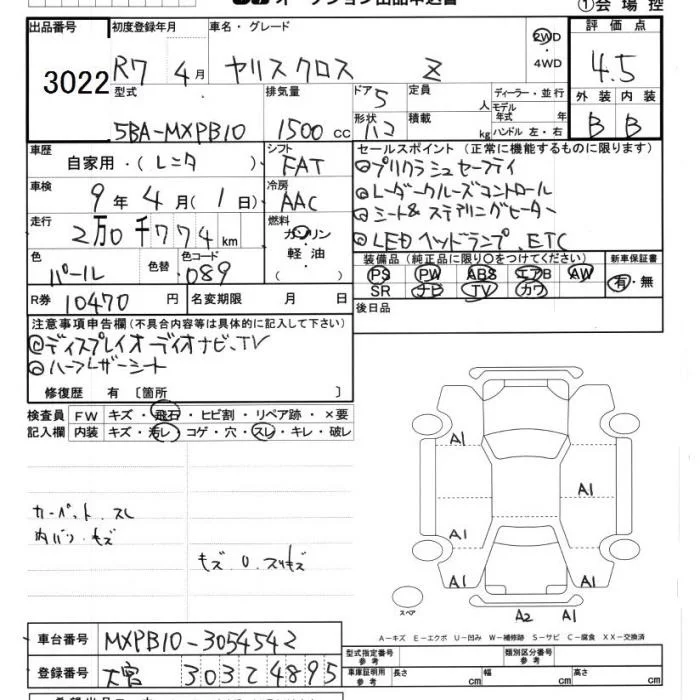 オークション出品申込書
①会場控
出品番号 初度登録年月 車名・グレード 評価点
3022 R7 4月 ヤリスクロス Z 2WD・4WD 4.5
型式 排気量 ドア 5 定員 人 ディーラー・並行 外装 内装
モデル年式 年
5BA-MXPB10 1500cc 形状 ハコ 積載 kg ハンドル 左・右 B B
車歴 シフト セールスポイント(正常に機能するものに限ります)
自家用・(レンタ) FAT ◎プリクラッシュセーフティ
車検 冷房 ◎レーダークルーズコントロール
9年4月(1日) AAC ◎シート&ステアリングヒーター
走行 燃料
2万0千774km ガソリン・軽油 ◎LEDヘッドランプ、ETC
色 色替 色コード 装備品(純正品に限り○をつけてください) 新車保証書
パール 089 PS PW ABS エアB AW 有・無
( ) SR ナビ TV カワ
R券 10470円 名変期限 月 日 後日品
注意事項申告欄(不具合内容等は具体的に記入して下さい)
◎ディスプレイオーディオナビ、TV
◎ハーフレザーシート
修復歴 有〔箇所 〕
検査員 FW キズ・飛石・ヒビ割・リペア跡・×要
記入欄 内装 キズ・汚レ・コゲ・穴・スレ・キレ・破レ
カーペット、スレ
内バン・キズ
キズ、O、スリキズ
A1
A1
A1
A1 A1
スペア A2 A1
A-キズ E-エクボ U-凹み W-補修跡 S-サビ C-腐食 XX-交換済
車台番号 MXPB10-3054542 型式指定番号 参考 類別区分番号 参考
登録番号 大宮 303 て 4895 車庫証明用 参考 長さ cm 幅 cm 高さ cm